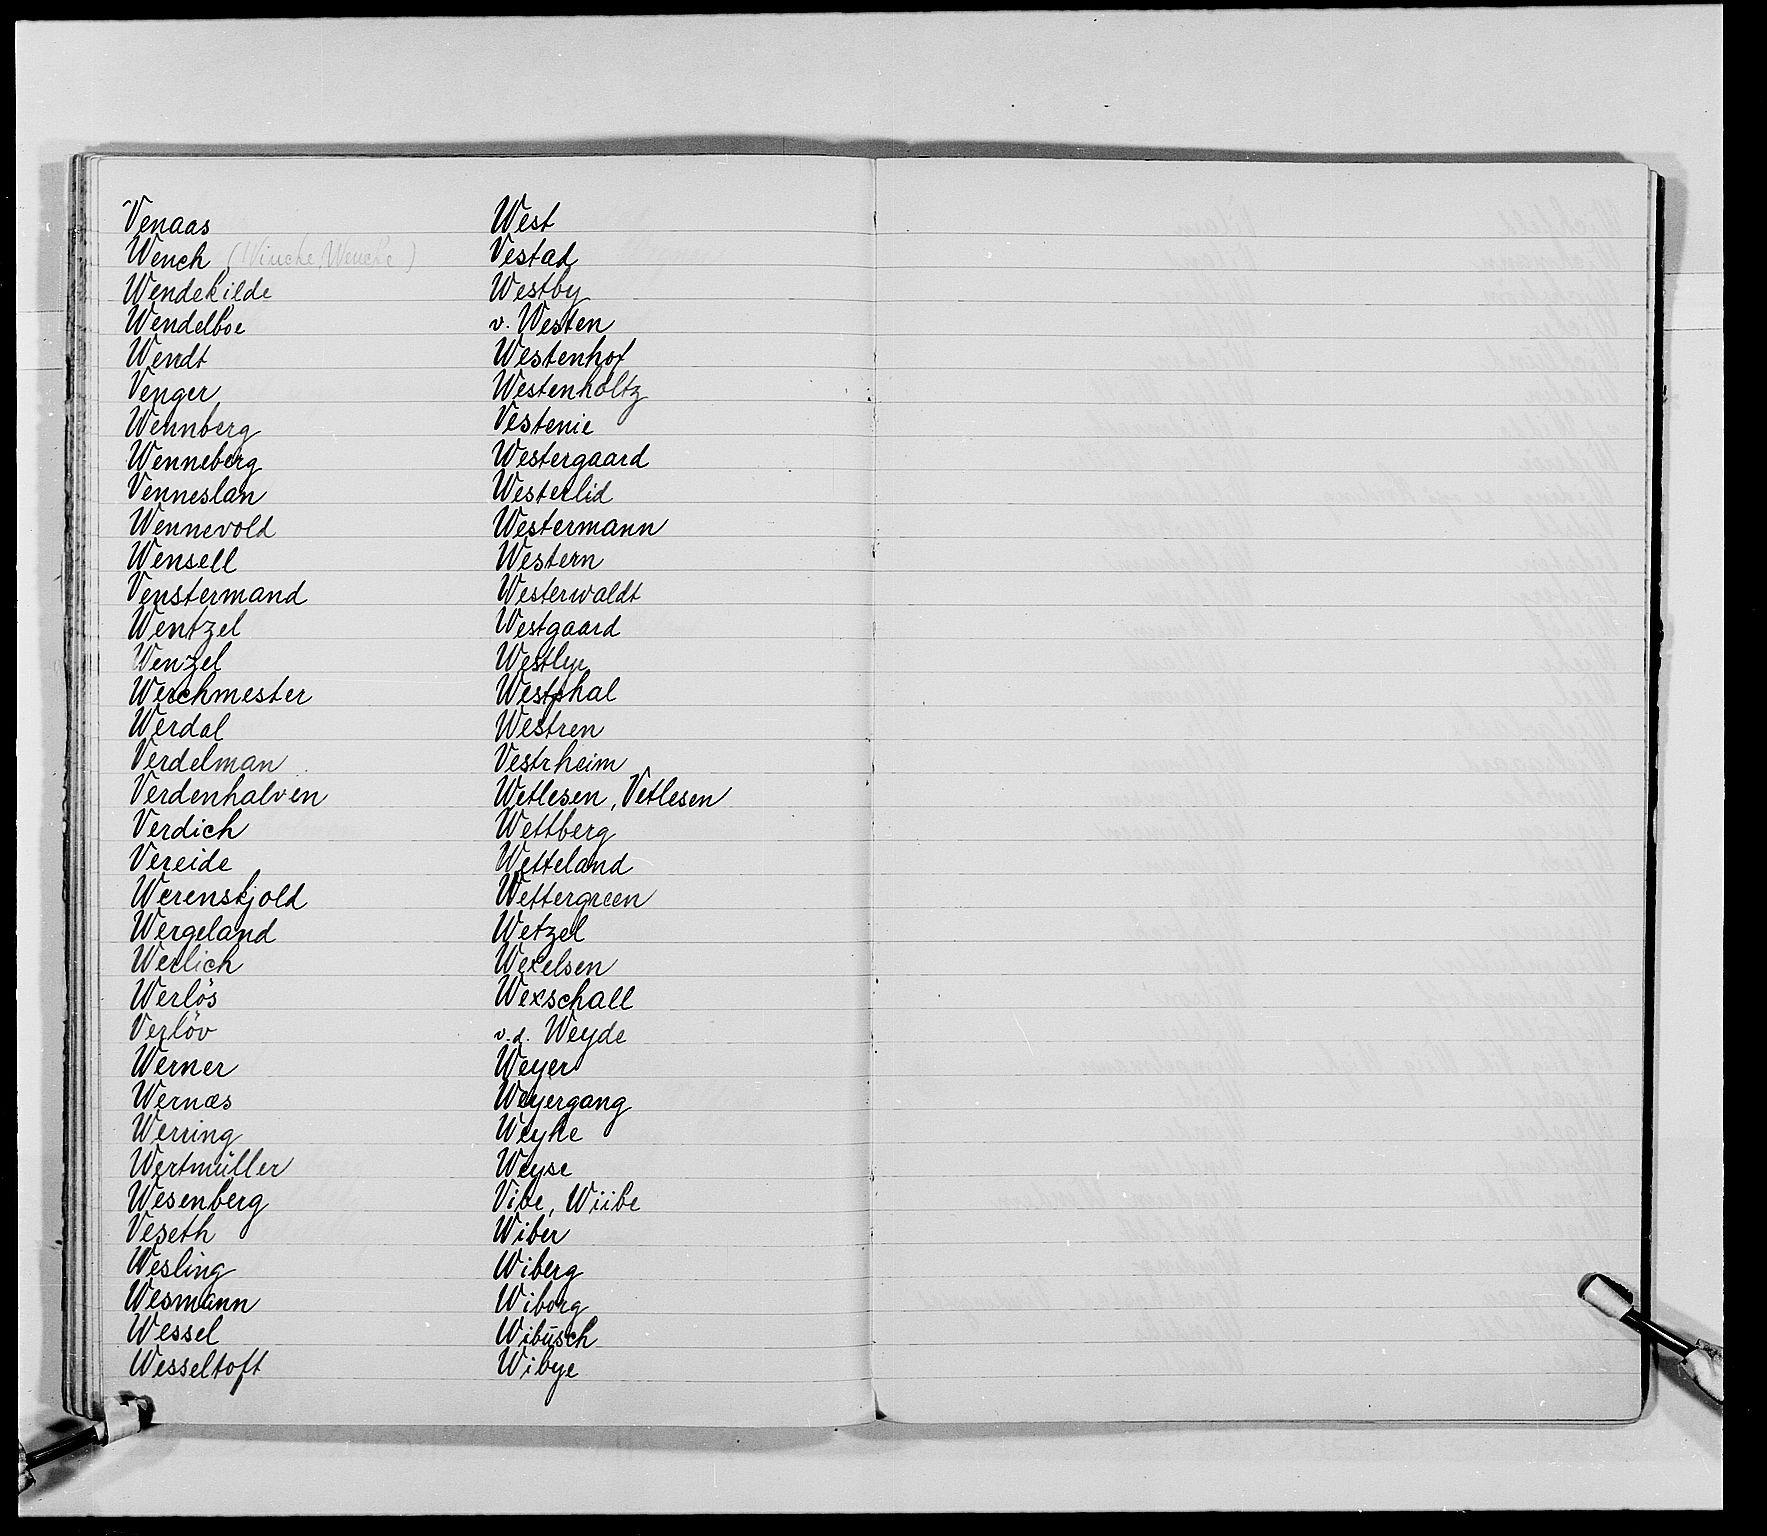 Venaas
Wench (Vincke, Wencke)
Wendekilde
Wendelboe
Wendt
Venger
Wennberg
Wenneberg
Venneslan
Wennevold
Wensell
Venstermand
Wentzel
Wenzel
Werchmester
Werdal
Verdelman
Verdenhalven
Verdich
Vereide
Werenskjold
Wergeland
Werlich
Werlös
Verlöv
Werner
Wernæs
Werring
Wertmüller
Wesenberg
Veseth
Wesling
Wesmann
Wessel
Wesseltoft
West
Vestad
Westby
v. Westen
Westenhof
Westenholtz
Vestenie
Westergaard
Westerlid
Westermann
Western
Westerwaldt
Westgaard
Westlye
Westphal
Westren
Vestrheim
Wetlesen, Vetlesen
Wettberg
Wetteland
Wettergreen
Wetzel
Wexelsen
Wexschall
v.d. Weyde
Weyer
Weyergang
Weyhe
Weyse
Vibe, Wiibe
Wiber
Wiberg
Wiborg
Wibüsch
Wibye